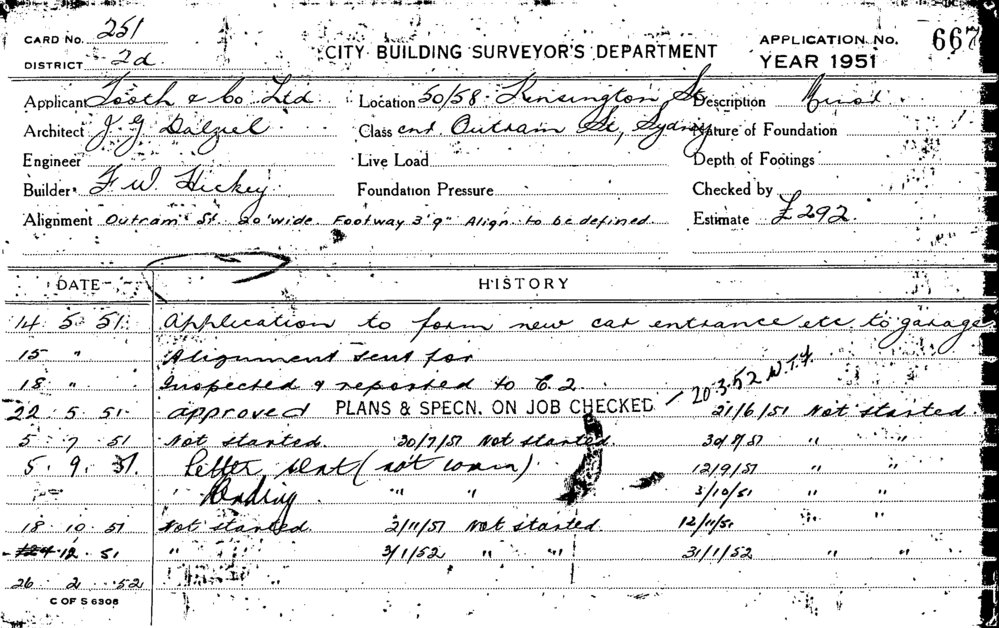 CARD No. 251
DISTRICT 2d
CITY BUILDING SURVEYOR'S DEPARTMENT
APPLICATION No. 667
YEAR 1951
Applicant Tooth & Co Ltd Location 50/58 Kensington St Description Minor
Architect J G Dalziel Class cnr Outram St, Sydney Nature of Foundation
Engineer Live Load Depth of Footings
Builder F. W. Hickey Foundation Pressure Checked by
Alignment Outram St. 20' wide Footway 3' 9" Align. to be defined Estimate £292
DATE HISTORY
14 . 5 . 51 Application to form new car entrance etc to garage
15 " Alignment sent for
18 " Inspected & reported to C.2
22 . 5 . 51 approved PLANS & SPECN. ON JOB CHECKED - 20.3.52 21/6/51 Not started.
5 . 7 . 51 Not started. 20/7/51 Not started 30/7/51 " "
5 . 9 . 51. Letter sent 12/9/51 " "
Pending " " 3/10/51 " "
18 . 10 . 51 Not started. 2/11/51 Not started 12/11/51 " "
12 . 51 " 3/1/52 " " 31/1/52 " "
26 2 52 "
C OF S 6308